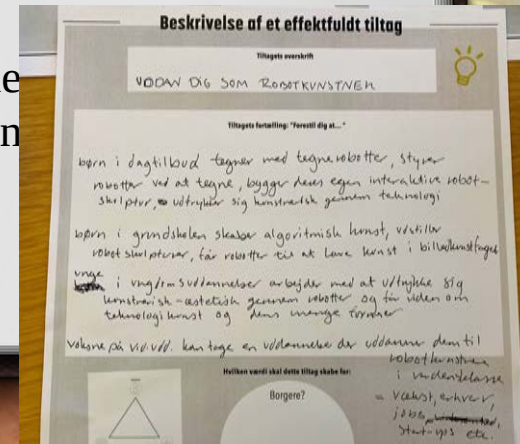 Beskrivelse af et effektfuldt tiltag
Tiltagets overskrift
UDDAN DIG SOM ROBOTKUNSTNER
Tiltagets fortælling: "Forestil dig at... "
børn i dagtilbud tegner med tegnerobotter, styrer
robotter ved at tegne, bygger deres egen interaktive robot-
skulptur, udtrykker sig kunstnerisk gennem teknologi
børn i grundskolen skaber algoritmisk kunst, udstiller
robotskulpturer, får robotter til at lave kunst i billedkunstfaget
unge i ungdomsuddannelser arbejder med at udtrykke sig
kunstnerisk-æstetisk gennem robotter og får viden om
teknologikunst og dens mange former
voksne på vid.udd. kan tage en uddannelse der uddanner dem til
robotkunstnere
i verdensklasse
Hvilken værdi skal dette tiltag skabe for:
Borgere?
= vækst, erhverv,
jobs,
start-ups etc.